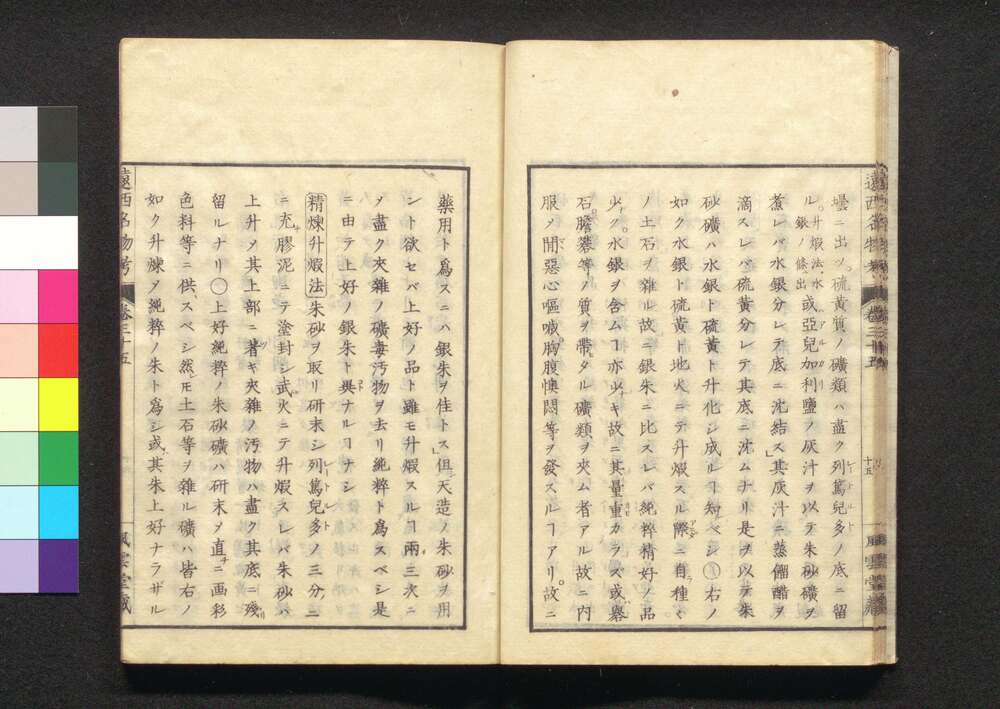 遠西名物考 卷三十五 十五 風雲堂藏
壜ニ出ツ硫黄質ノ礦類ハ盡ク列篤兒多ノ底ニ留
ル升煆法水銀ノ條ニ出或亞兒加利鹽ノ灰汁ヲ以テ朱砂礦ヲ
煮レバ水銀分レテ底ニ沈結ス其灰汁ニ蒸餾醋ヲ
滴スレバ硫黄分レテ其底ニ沈ムナリ是ヲ以テ朱
砂礦ハ水銀ト硫黄ト升化シ成ルヿ知ベシ〇右ノ
如ク水銀ト硫黄ト地火ニテ升煆スル際ニ自ラ種々
ノ土石ヲ雜ル故ニ銀朱ニ比スレバ純粹精好ノ品
少ク水銀ヲ含ムヿ亦少キ故ニ其量重カラズ或ハ礜
石膽礬等ノ質ヲ帶タル礦類ヲ夾ム者アル故ニ内
服ノ間惡心嘔噦胸腹懊悶等ヲ發スルヿアリ故ニ
藥用ト爲スニハ銀朱ヲ佳トス但シ天造ノ朱砂ヲ用
ント欲セバ上好ノ品ト雖モ升煆スルヿ兩三次ニ
〆盡ク夾雜ノ礦毒汚物ヲ去リ純粹ト爲スベシ是
ニ由テ上好ノ銀朱ト異ナルヿナシ
精煉升煆法朱砂ヲ取リ研末シ列篤兒多ノ三分二
ニ充膠泥ニテ塗封シ武火ニテ升煆スレバ朱砂ハ
上升〆其上部ニ著キ夾雜ノ汚物ハ盡ク其底ニ殘
留ルナリ〇上好純粹ノ朱砂礦ハ研末ヲ直ニ画彩
色料等ニ供スベシ然𪜈土石等ヲ雜ル礦ハ皆右ノ
如ク升煉〆純粹ノ朱ト爲シ或其朱上好ナラザル
遠西名物考 卷三十五 風雲堂藏